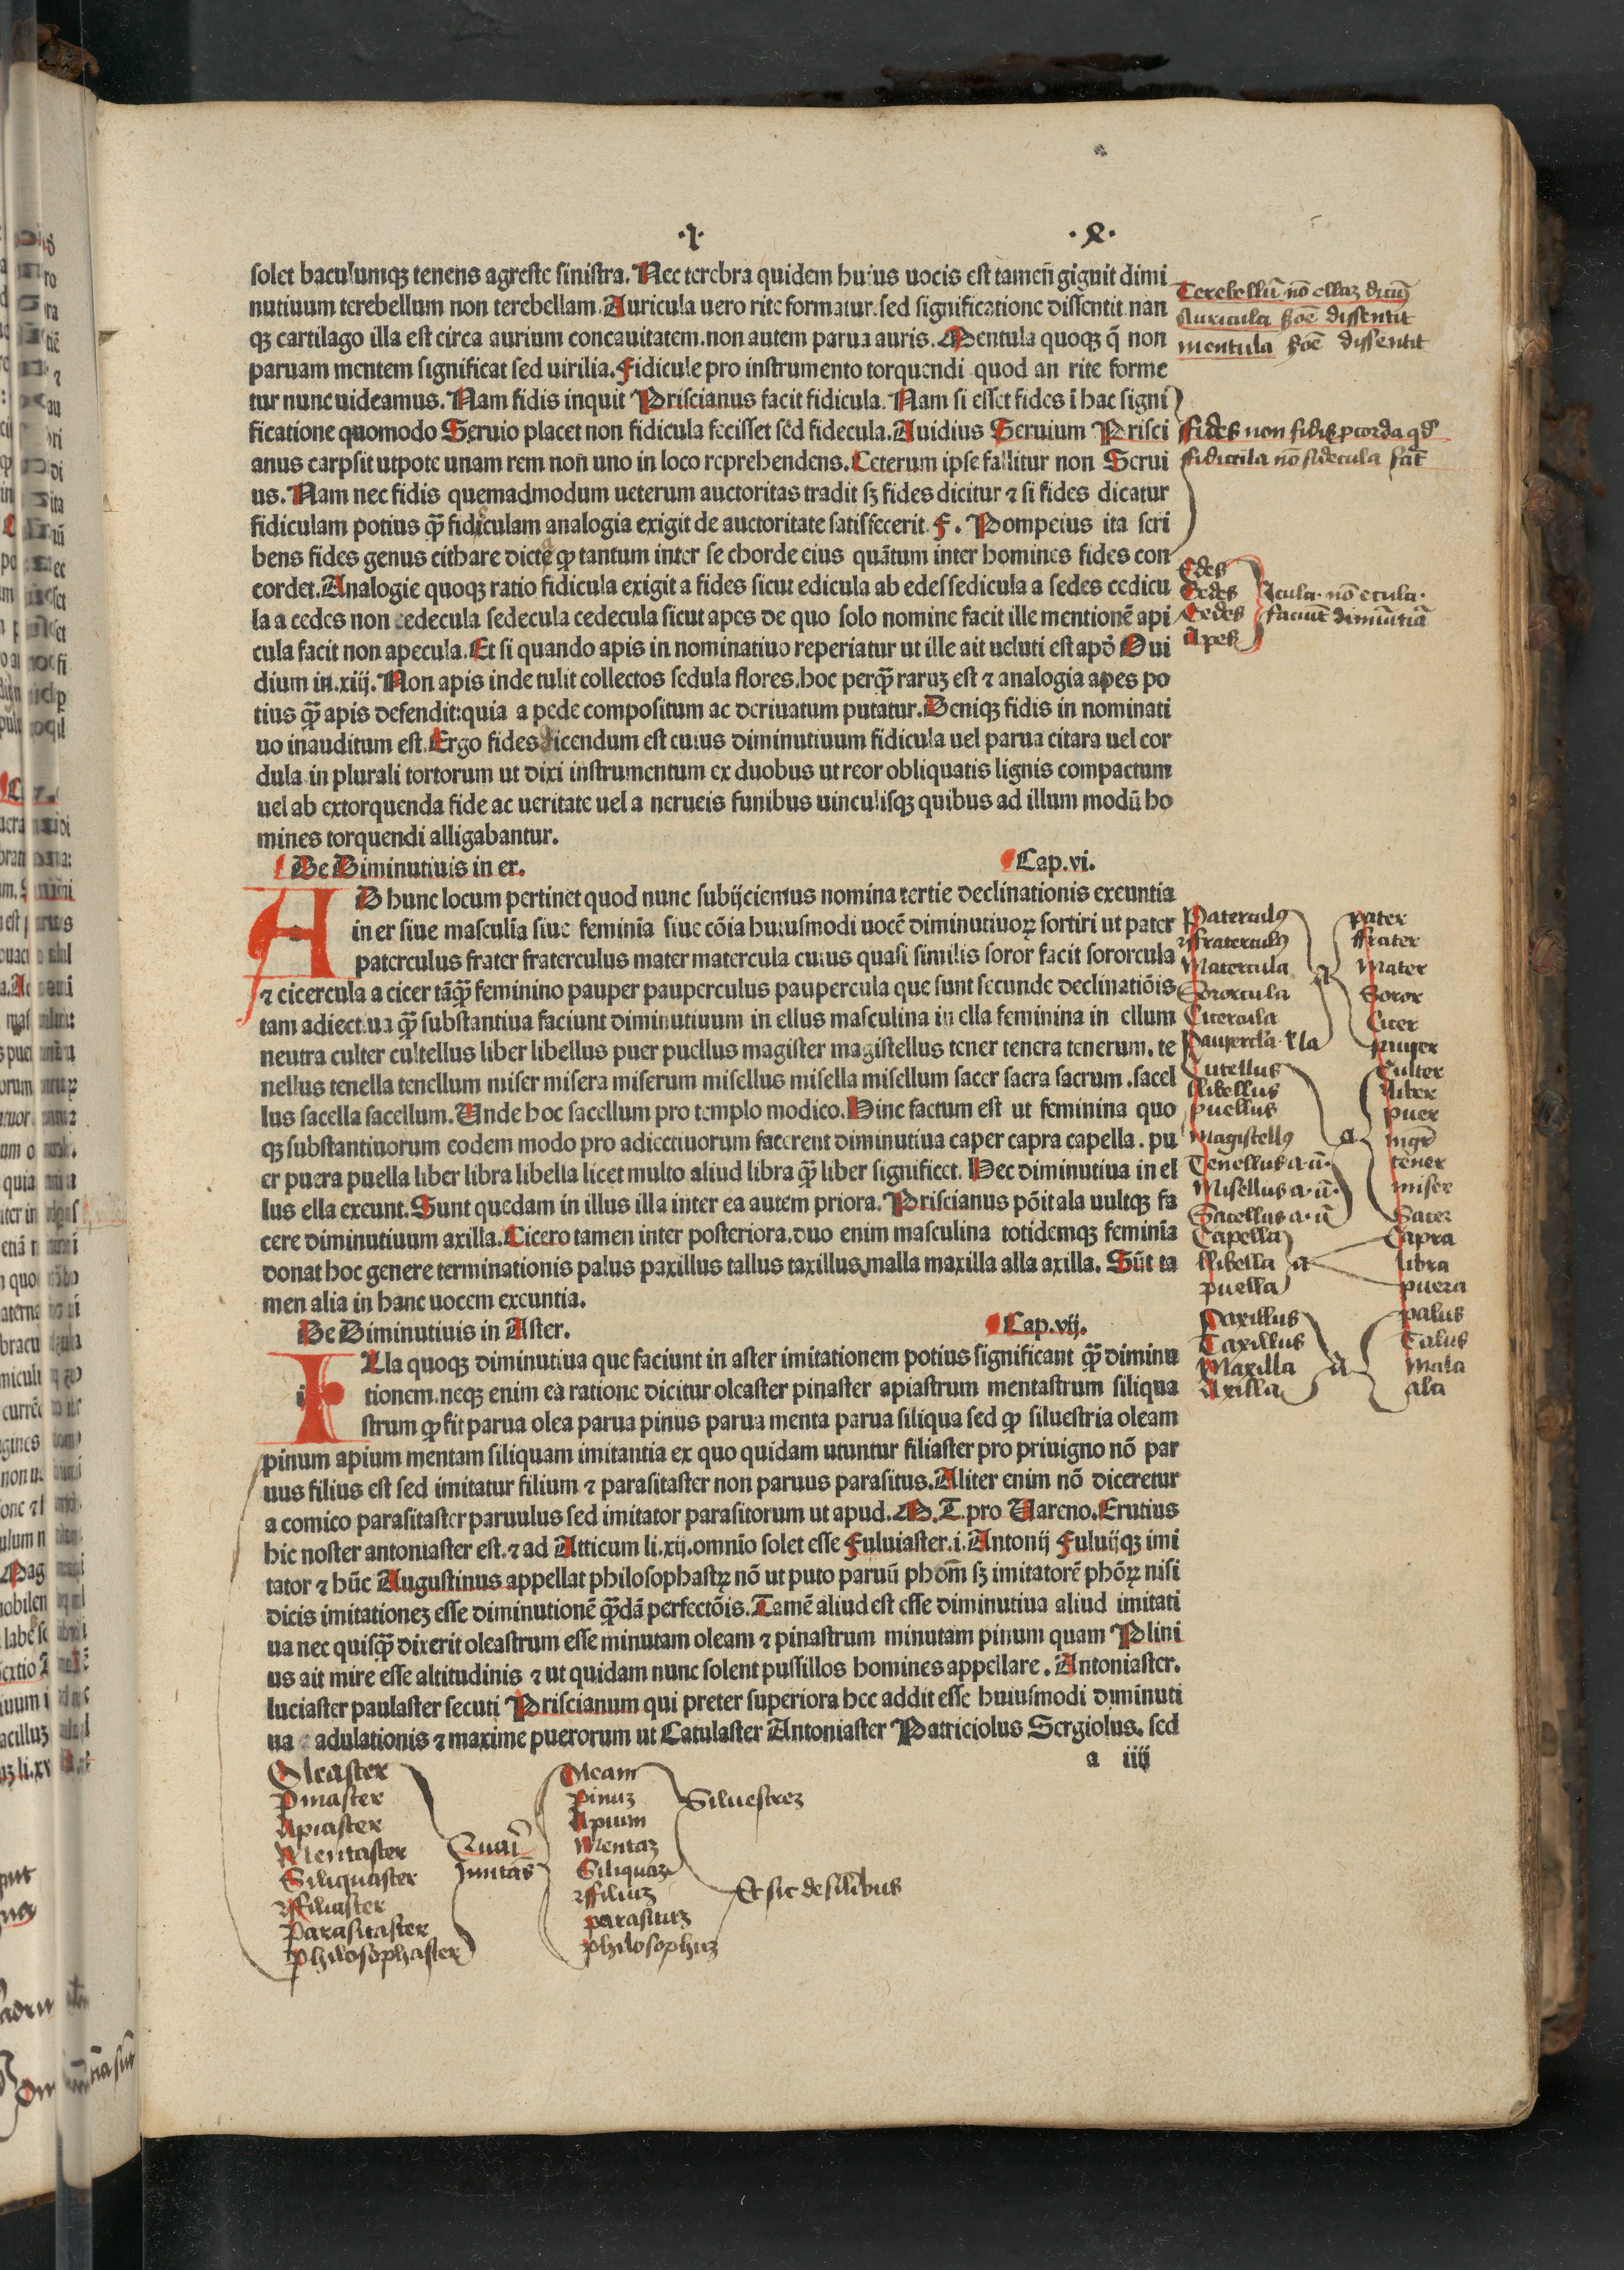 ·I·
solet baculumqꝫ tenens agreste sinistra. Nec terebra quidem huius uocis est tamen̄ gignit dimi
nutiuum terebellum non terebellam. Auricula uero rite formatur. sed significatione dissentit nan
qꝫ cartilago illa est circa aurium concauitatem. non autem parua auris. Mentula quoqꝫ q̄ non
paruam mentem significat sed uirilia. Fidicule pro instrumento torquendi quod an rite forme
tur nunc uideamus. Nam fidis inquit Priscianus facit fidicula. Nam si esset fides ī hac signi
ficatione quomodo Seruio placet non fidicula fecisset sed fidecula. Auidius Seruium Prisci
anus carpsit utpote unam rem non uno in loco reprehendens. Ceterum ipse fallitur non Serui
us. Nam nec fidis quemadmodum ueterum auctoritas tradit sꝫ fides dicitur ⁊ si fides dicatur
fidiculam potius qꝫ̄ fidiculam analogia exigit de auctoritate satisfecerit F. Pompeius ita scri
bens fides genus cithare dicte ꝙ tantum inter se chorde eius quātum inter homines fides con
cordet. Analogie quoqꝫ ratio fidicula exigit a fides sicut edicula ab edes sedicula a sedes cedicu
la a cedes non edecula sedecula cedecula sicut apes de quo solo nomine facit ille mentionē api
cula facit non apecula. Et si quando apis in nominatiuo reperiatur ut ille ait ueluti est apđ Oui
dium in. xiij. Non apis inde tulit collectos sedula flores. hoc perqꝫ̄ raruꝫ est ⁊ analogia apes po
tius qꝫ̄ apis defendit: quia a pede compositum ac deriuatum putatur. Deniqꝫ fidis in nominati
uo inauditum est. Ergo fides dicendum est cuius diminutiuum fidicula uel parua citara uel cor
dula in plurali tortorum ut dixi instrumentum ex duobus ut reor obliquatis lignis compactum
uel ab extorquenda fide ac ueritate uel a nerueis funibus uinculisqꝫ quibus ad illum modū ho
mines torquendi alligabantur.
De Diminutiuis in er. Cap. vi.
AD hunc locum pertinet quod nunc subijciemus nomina tertie declinationis exeuntia
in er siue masculīa siue feminīa siue cōia huiusmodi uocē diminutiuoꝝ sortiri ut pater
paterculus frater fraterculus mater matercula cuius quasi similis soror facit sororcula
⁊ cicercula a cicer tāqꝫ̄ feminino pauper pauperculus paupercula que sunt secunde declinatiōis
tam adiectiua qꝫ̄ substantiua faciunt diminutiuum in ellus masculina in ella feminina in ellum
neutra culter cultellus liber libellus puer puellus magister magistellus tener tenera tenerum. te
nellus tenella tenellum miser misera miserum misellus misella misellum sacer sacra sacrum. sacel
lus sacella sacellum. Unde hoc sacellum pro templo modico. Hinc factum est ut feminina quo
qꝫ substantiuorum eodem modo pro adiectiuorum facerent diminutiua caper capra capella. pu
er puera puella liber libra libella licet multo aliud libra qꝫ̄ liber significet. Hec diminutiua in el
lus ella exeunt. Sunt quedam in illus illa inter ea autem priora. Priscianus pōit ala uultqꝫ fa
cere diminutiuum axilla. Cicero tamen inter posteriora. duo enim masculina totidemqꝫ feminīa
donat hoc genere terminationis palus paxillus tallus taxillus, malla maxilla alla axilla. Sūt ta
men alia in hanc uocem exeuntia.
De Diminutiuis in Aster. Cap. vij.
ILla quoqꝫ diminutiua que faciunt in aster imitationem potius significant qꝫ̄ diminu
tionem. neqꝫ enim ea ratione dicitur oleaster pinaster apiastrum mentastrum siliqua
strum ꝙ sit parua olea parua pinus parua menta parua siliqua sed ꝙ siluestria oleam
pinum apium mentam siliquam imitantia ex quo quidam utuntur filiaster pro priuigno nō par
uus filius est sed imitatur filium ⁊ parasitaster non paruus parasitus. Aliter enim nō diceretur
a comico parasitaster paruulus sed imitator parasitorum ut apud. M. T. pro Uareno. Erutius
hic noster antoniaster est. ⁊ ad Atticum li. xij. omnīo solet esse Fuluiaster. i. Antonij Fuluijqꝫ imi
tator ⁊ hūc Augustinus appellat philosophastꝝ nō ut puto paruū phōm̄ sꝫ imitatorē phōꝝ nisi
dicis imitationeꝫ esse diminutionē qꝫ̄dā perfectōis. Tamē aliud est esse diminutiua aliud imitati
ua nec quisqꝫ̄ dixerit oleastrum esse minutam oleam ⁊ pinastrum minutam pinum quam Plini
us ait mire esse altitudinis ⁊ ut quidam nunc solent pussillos homines appellare. Antoniaster.
luciaster paulaster secuti Priscianum qui preter superiora hec addit esse huiusmodi diminuti
ua adulationis ⁊ maxime puerorum ut Catulaster Antoniaster Patriciolus Sergiolus. sed
a iiij
Terebellū nō ellaꝫ
Auricula dissentit
mentula dissentit
fides non fidis
fidicula nō fidecula
Edes
Sedes
Cedes
Apes
Icula. nō ecula.
faciūt
Paterculꝰ
fraterculꝰ
Matercula
Sororcula
Cicercula
a
pater
frater
Mater
Soror
Cicer
pauper
Cutellus
libellus
puellus
Magistellꝰ
Tenellus a. ū.
Misellus a. ū.
Sacellus a. ū
a
Culter
liber
puer
mgr̄
tener
miser
Sacer
Capella
libella
puella
a
Capra
libra
puera
Paxillus
Taxillus
Maxilla
Axilla
a
palus
Talus
Mala
ala
Oleaster
Pinaster
Apiaster
Mentaster
Siliquaster
ffiliaster
Parasitaster
Philosophaster
Oleam
pinuꝫ
Apium
Mentaꝫ
Siliquaꝫ
ffiliuꝫ
parasituꝫ
philosophuꝫ
Siluestreꝫ
Et sic de silibus